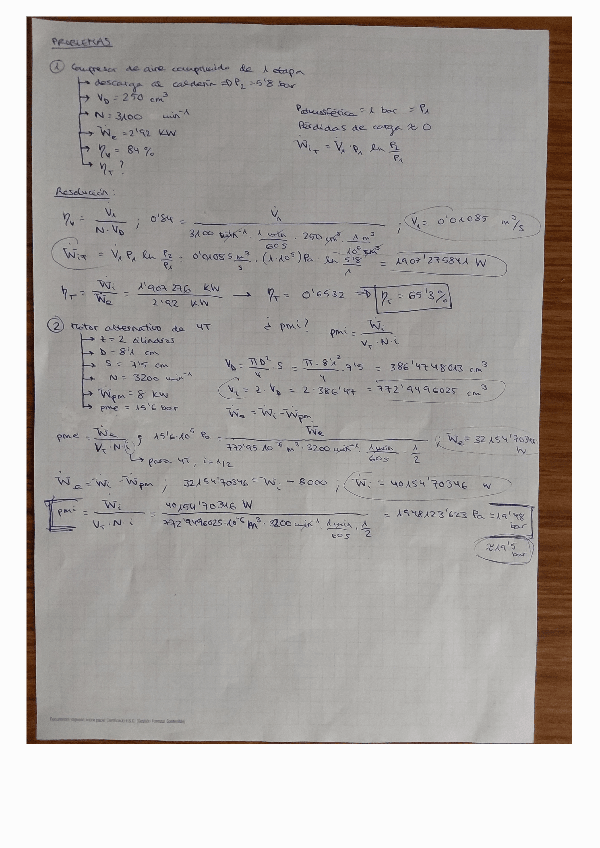 PROBLEMAS
① Compresor de aire comprimido de 1 etapa
→ descarga de calderín ⇒ P₂ = 5'8 bar
→ V_D = 250 cm³
→ N = 3100 min⁻¹
→ Ẇe = 2'92 KW
→ ηv = 84%
→ η_T?
Patmosférica = 1 bar = P₁
Pérdidas de carga ≈ 0
Ẇi_T = V̇₁ · P₁ ln P₂/P₁
Resolución:
ηv = V̇₁ / N·V_D ; 0'84 = V̇₁ / 3100 min⁻¹ · 1 min/60 s · 250 cm³ · 1 m³/10⁶ cm³ ; V̇₁ = 0'01085 m³/s
Ẇi_T = V̇₁ P₁ ln P₂/P₁ = 0'01085 m³/s · (1·10⁵) Pa ln 5'8/1 = 1907'275841 W
η_T = Ẇi/Ẇe = 1'907276 KW / 2'92 KW → η_T = 0'6532 ⇒ η_T = 65'3%
② Motor alternativo de 4T
→ z = 2 cilindros
→ D = 8'1 cm
→ S = 7'5 cm
→ N = 3200 min⁻¹
→ Ẇpm = 8 KW
→ pme = 15'6 bar
¿pmi? pmi = Ẇi / V_T·N·i
V_D = πD²/4 · S = π·8'1²/4 · 7'5 = 386'4748013 cm³
V_T = 2·V_D = 2·386'47 = 772'9496025 cm³
Ẇe = Ẇi − Ẇpm
pme = Ẇe / V_T·N·i ; 15'6·10⁵ Pa = Ẇe / 772'95·10⁻⁶ m³ · 3200 min⁻¹ · 1 min/60 s · 1/2 ; Ẇe = 32154'70346 W
→ para 4T, i = 1/2
Ẇe = Ẇi − Ẇpm ; 32154'70346 = Ẇi − 8000 ; Ẇi = 40154'70346 W
pmi = Ẇi / V_T·N·i = 40154'70346 W / 772'9496025·10⁻⁶ m³ · 3200 min⁻¹ · 1 min/60 s · 1/2 = 1948123'623 Pa = 19'48 bar
≈ 19'5 bar